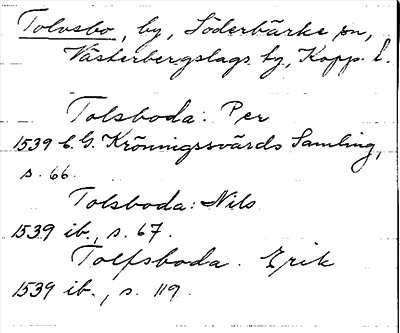 Tolvsbo, by, Söderbärke sn,
Västerbergslags hg, Kopp. l.
Tolsboda: Per
1539 C. G. Kröningssvärds Samling,
s. 66.
Tolsboda: Nils
1539 ib., s. 67.
Tolfsboda. Erik
1539 ib., s. 119.